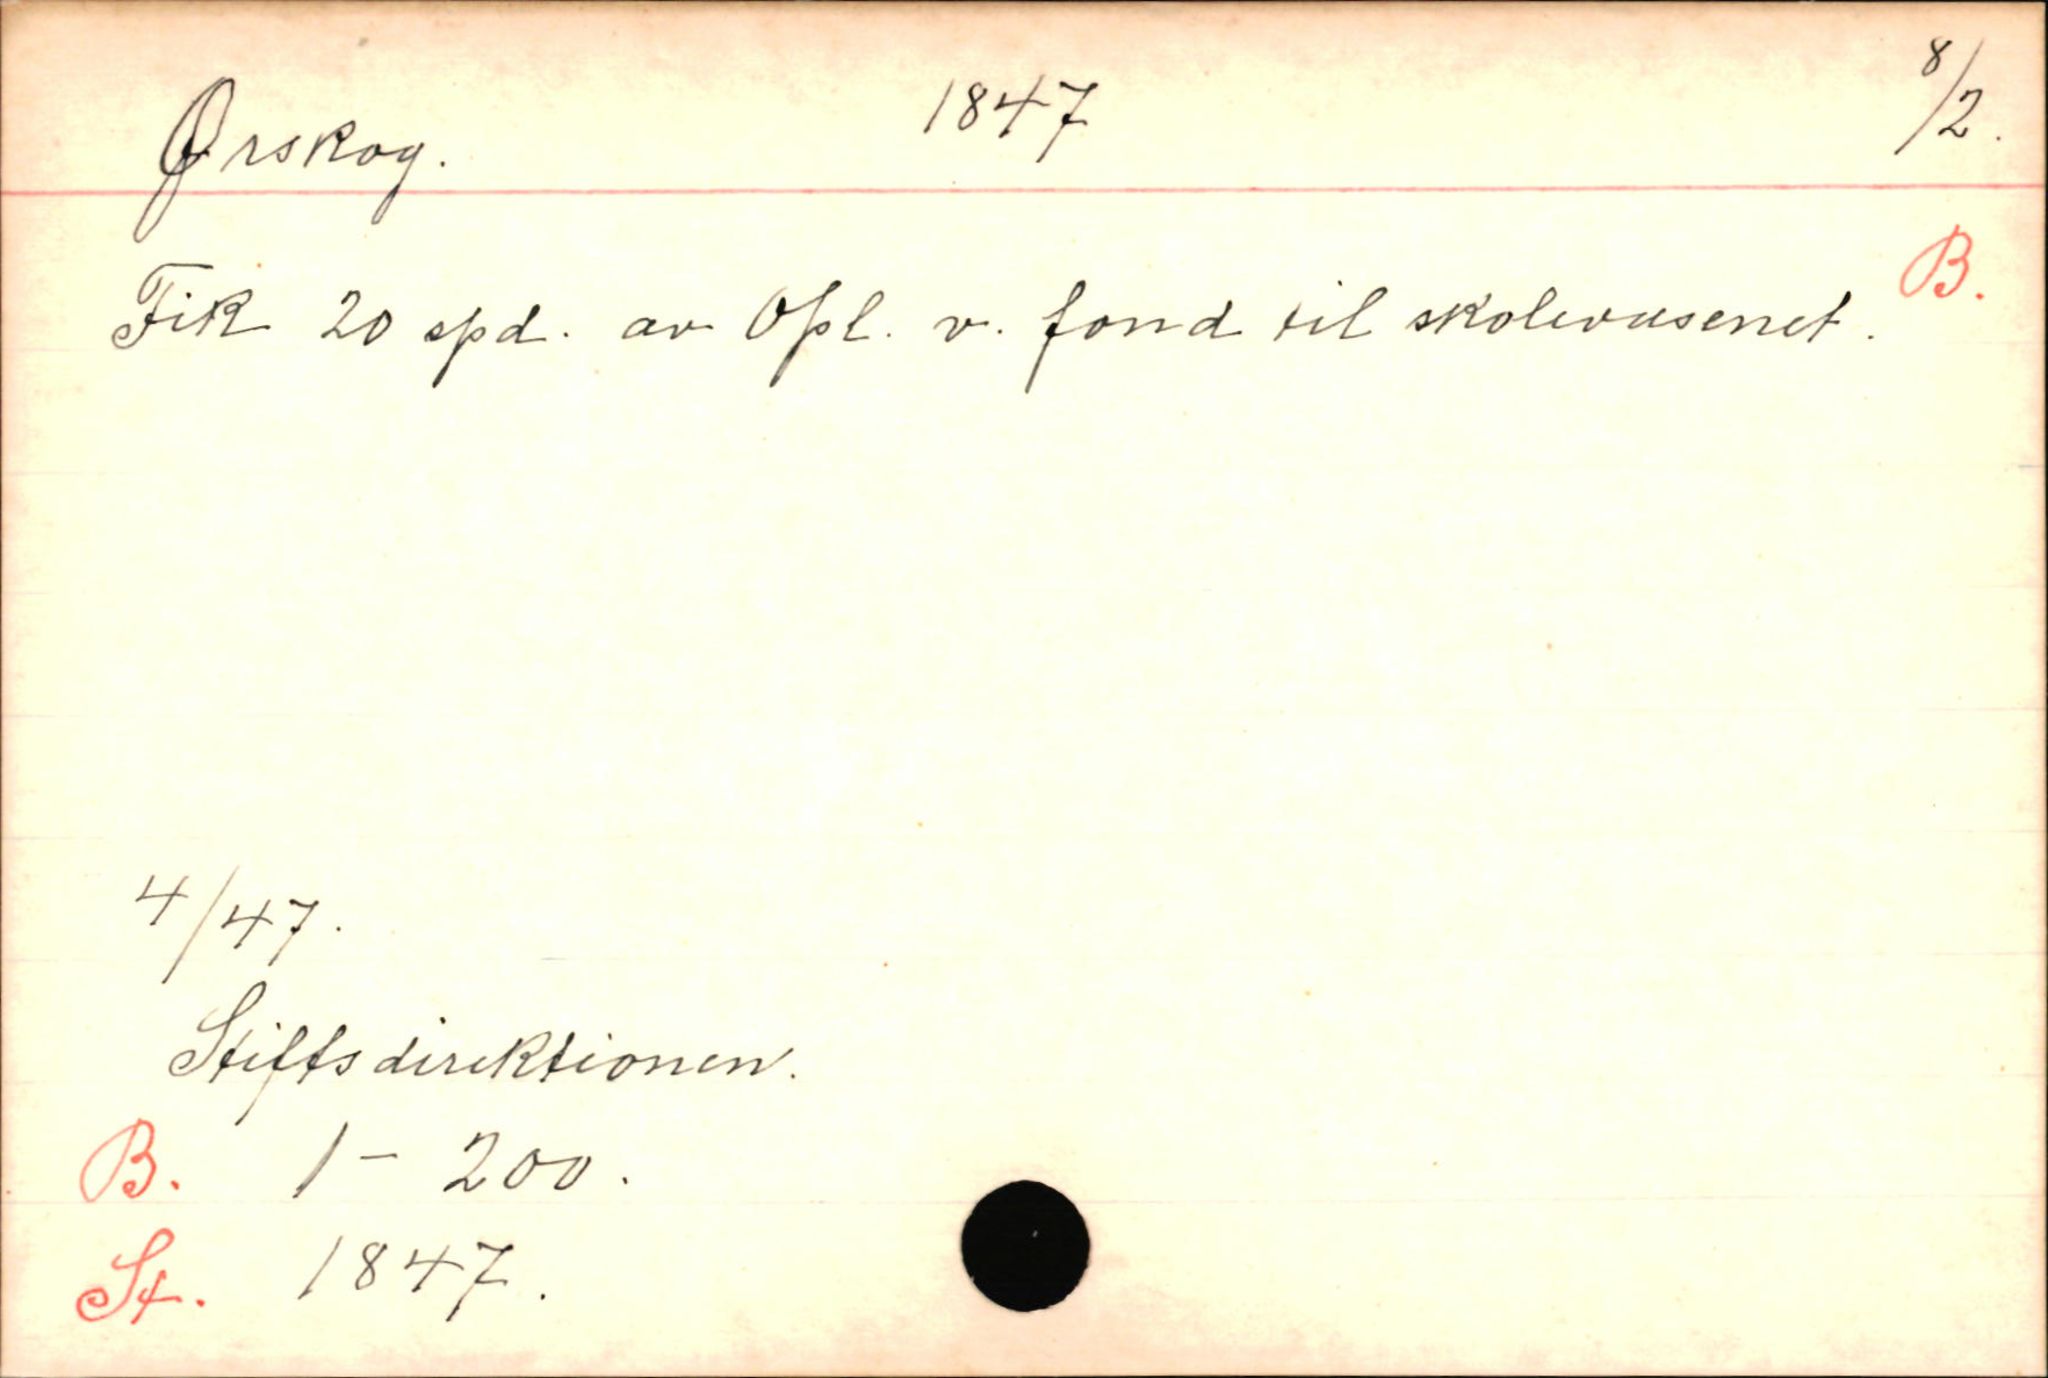 Ørskog. 1847 8/2.
B.
Fik 20 spd. av Opl. v. fond til skolevæsenet.
4/47.
Stiftsdirektionen.
B. 1 - 200.
St. 1847.